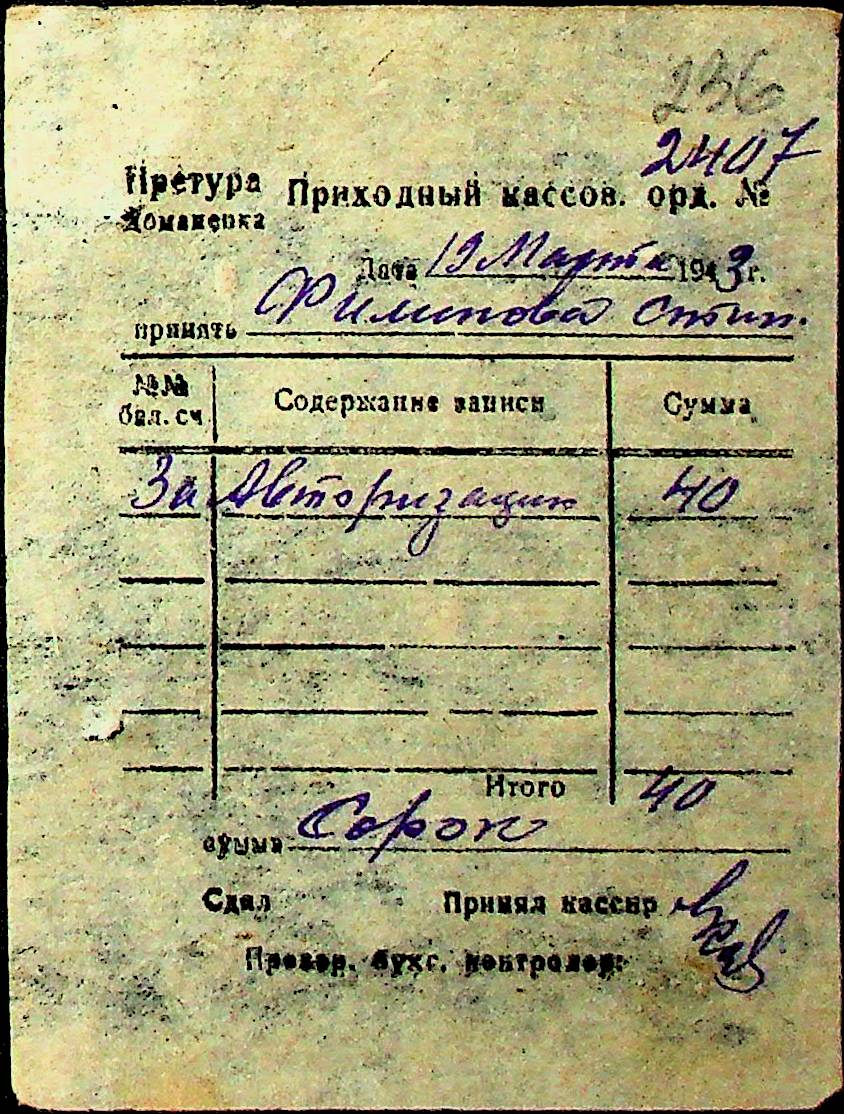 236
2407
Претура Приходный кассов. орд. №
Доманевка
Дата 19 Марта 1943 г.
принять Филипова Степ.
№№ бал. сч. Содержание записи Сумма
За Авторизацию 40
Итого 40
сумма Сорок
Сдал Принял кассир
Провер. бухг. контролер: